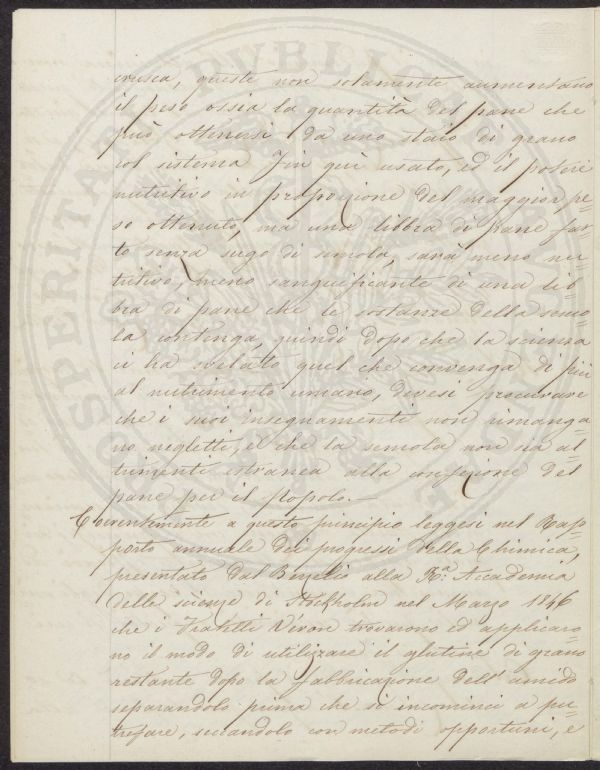 crusca, queste non solamente aumentano
il peso ossia la quantità del pane che
può ottenersi da uno staio di grano
col sistema fin quì usato, ed il potere
nutritivo in proporzione del maggior pe=
so ottenuto, ma una libbra di pane fat=
to senza sugo di semola, sarà meno nu=
tritivo, meno sanguificante di una lib=
bra di pane che le sostanze della semo=
la contenga, quindi dopo che la scienza
ci ha svelato quel che convenga di più
al nutrimento umano, devesi procurare
che i suoi insegnamenti non rimanga=
no negletti, e che la semola non sia al=
trimenti estranea alla confezione del
pane per il Popolo.—
Coerentemente a questo principio leggesi nel Rap=
porto annuale dei progressi della Chimica,
presentato dal Berzelio alla Rª. Accademia
delle scienze di Stockholm nel Marzo 1846
che i Fratelli Véron trovarono ed applicaro=
no il modo di utilizzare il glutine di grano
restante dopo la fabbricazione dell'amido
separandolo prima che si incominci a pu=
trefare, seccandolo con metodi opportuni, e